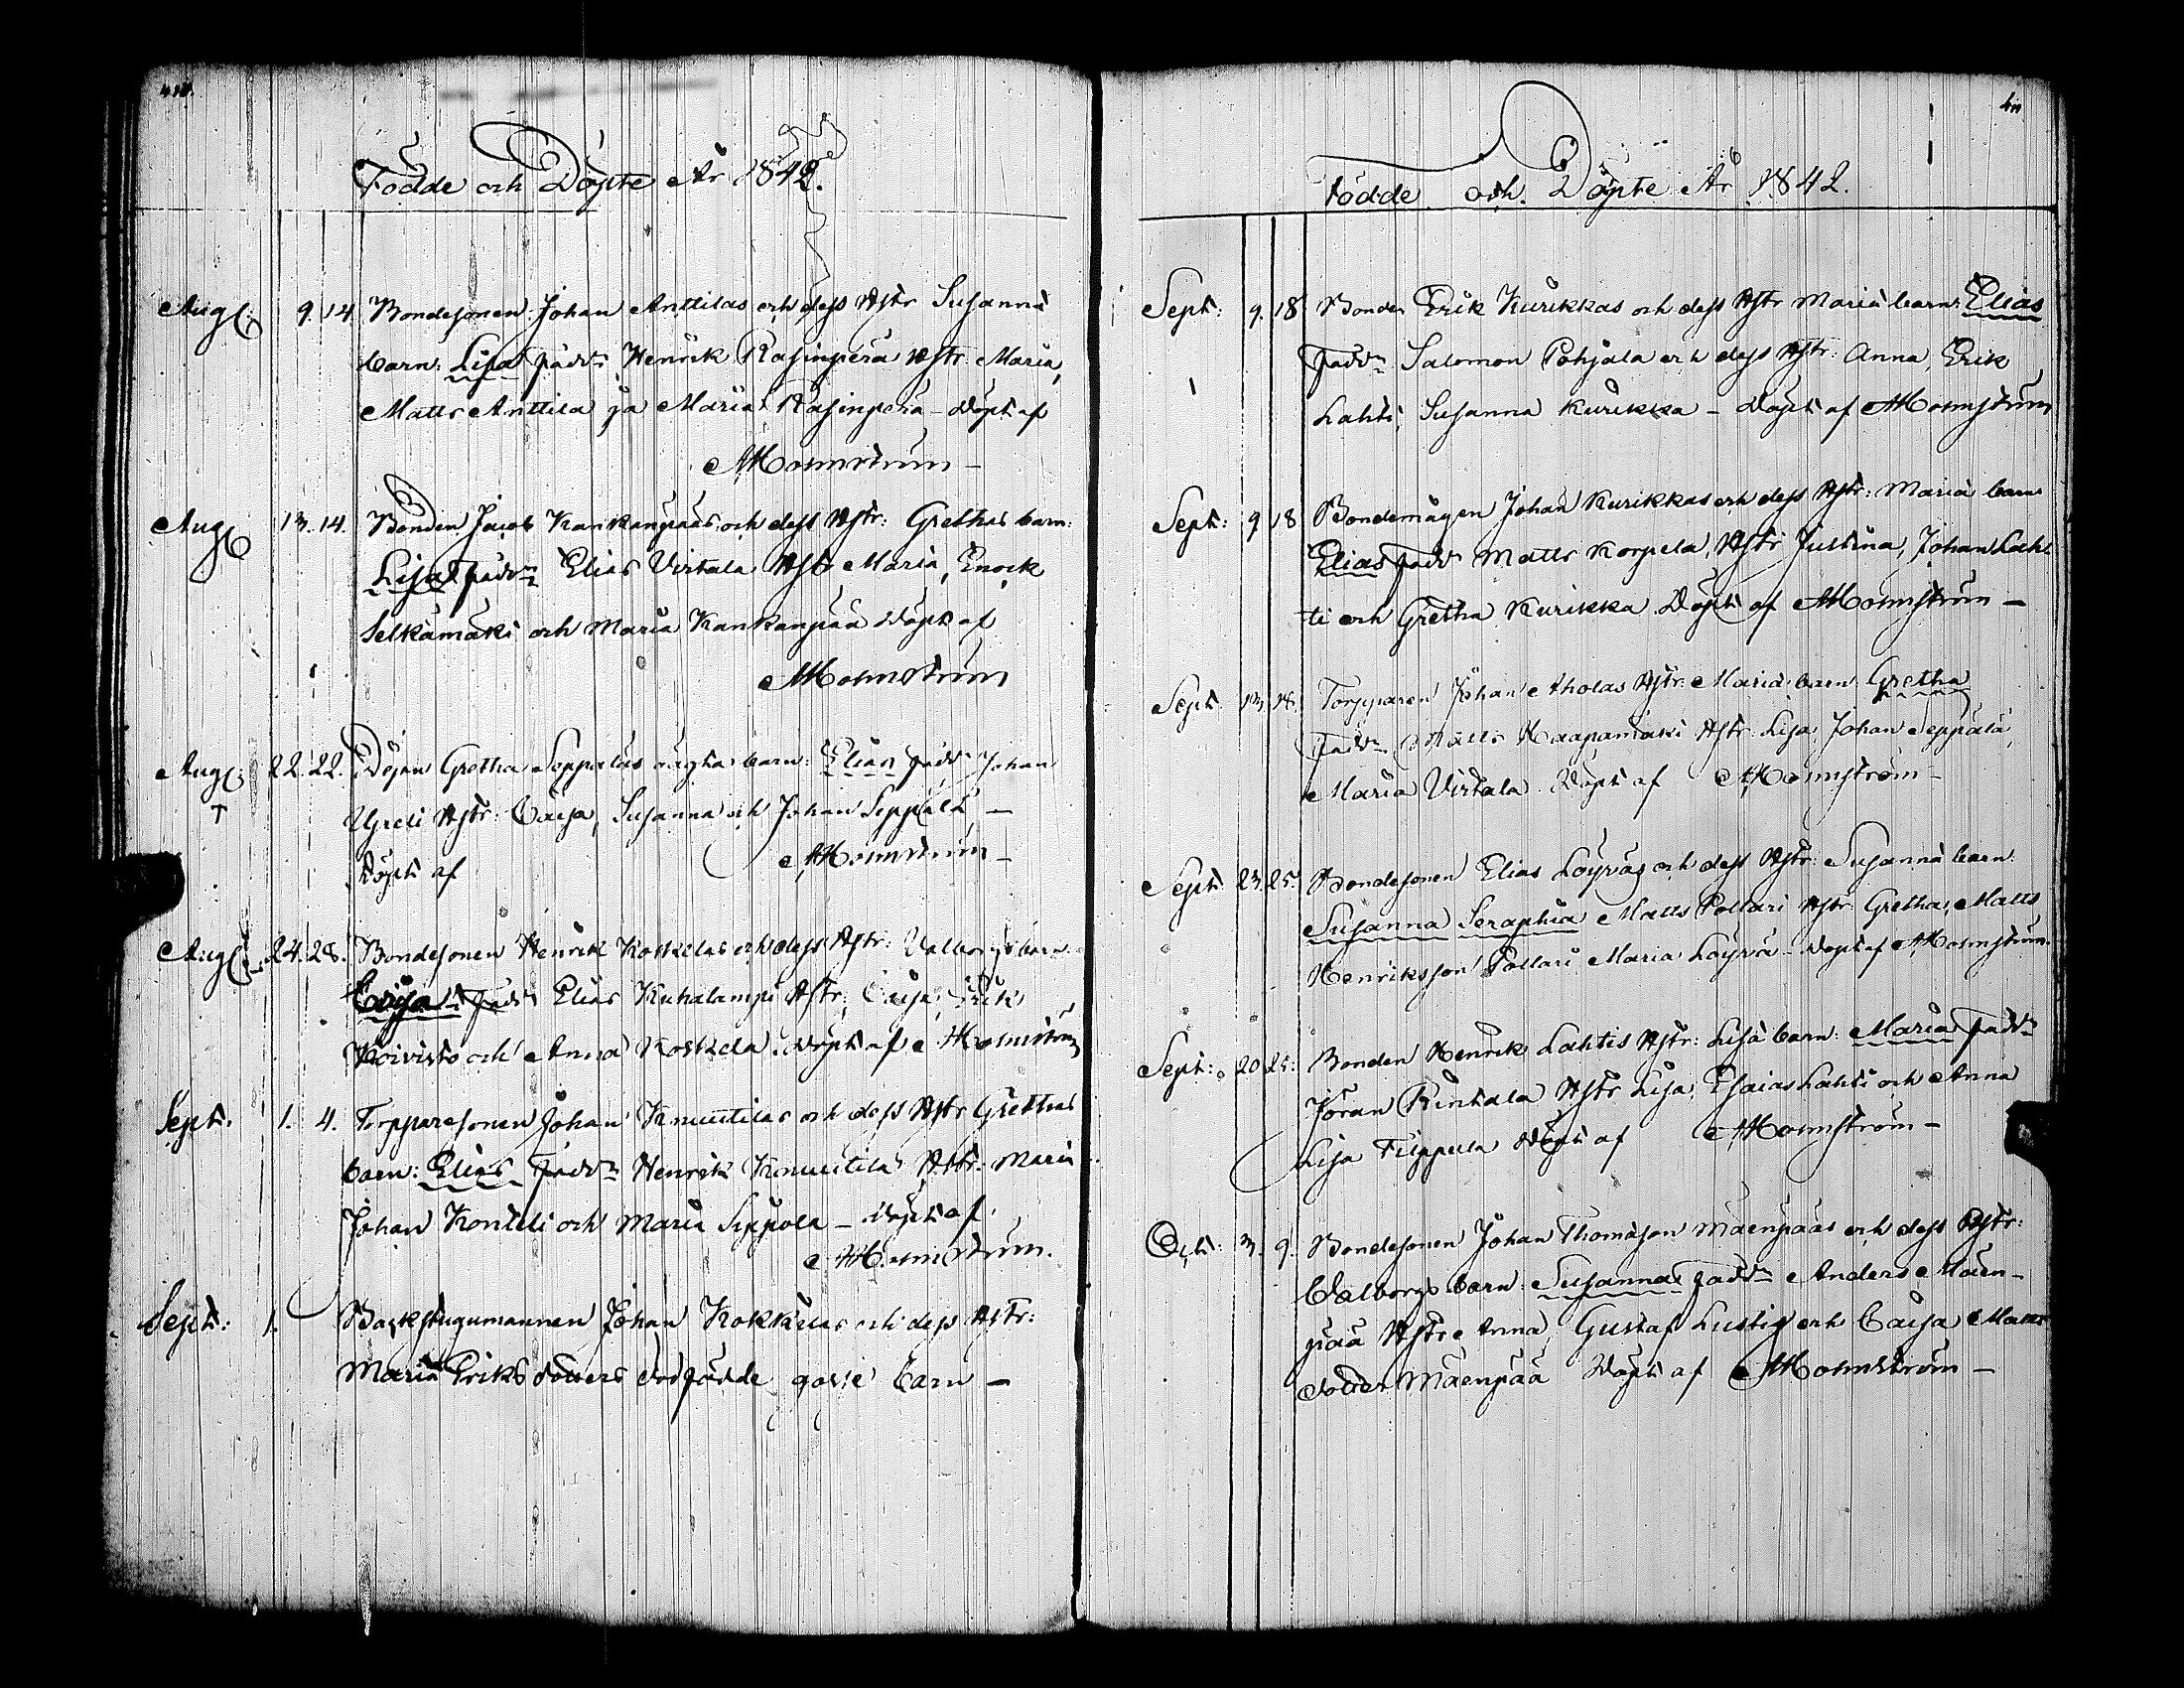 Födde och Döpte År 1842.
Aug: 9. 14. Bondesonen Johan Anttilas och dess Hstr Susanna
barn: Lisa fadd: Henrik Rasinperä Hstr Maria,
Matts Anttila ja Maria Rasinperä – Döpt af
AHolmström –
Aug 13. 14. Bonden Jacob Kankanpääs och dess Hstr: Grethas barn:
Lisa fadd: Elias Virtala Hstr Maria, Enock
Selkämäki och Maria Kankanpää Döpt af
AHolmström
Aug: 22. 22. Gretha Seppäläs oägta barn: Elias fadd: Johan
Hstr: Caisa, Susanna och Johan Seppälä –
Döpt af AHolmström –
Aug: 24. 28. Bondesonen Henrik Koskelas och dess Hstr: Valborgs barn
Caisa – fadd: Elias Kuhalampi Hstr: Caisa, Erik
Koivisto och Anna Koskela. Döpt af AHolmström
Sept. 1. 4. Torpparesonen Johan Knuutilas och dess Hstr Grethas
barn: Elias fadd: Henrik Knuutila Hstr: Maria
Johan Kontteli och Maria Seppola – Döpt af
AHolmström.
Sept: 1. Backstugumannen Johan Kokkilas och dess Hstr:
Maria Eriksdotters dödfödde gosse barn –
Födde och Döpte År 1842.
Sept: 9. 18 Bonden Erik Kurikkas och dess Hstr Maria barn: Elias
fadd: Salomon Pohjala och dess Hstr: Anna, Erik
Lahti, Susanna Kurikka – Döpt af AHolmström
Sept: 9 18 Bondemågen Johan Kurikkas och dess Hstr: Maria barn
Elias fadd: Matts Korpela, Hstr Justina, Johan Lah-
ti och Gretha Kurikka Döpt af AHolmström –
Sept. 13. 18. Torpparen Johan Aholas Hstr: Maria barn Gretha
fadd: Matts Haapamäki Hstr: Lisa, Johan Seppälä,
Maria Virtala Döpt af AHolmström –
Sept 23. 25. Bondesonen Elias Löyväs och dess Hstr: Susanna barn:
Susanna Seraphia Matts Pollari Hstr Gretha, Matts
Henriksson Pollari Maria Löyvä – Döpt af AHolmström.
Sept: 20 25: Bonden Henrik Lahtis Hstr: Lisa barn: Maria fadd:
Jöran Rintala Hstr Lisa, Esaias Lahti och Anna
Lisa Filppula Döpt af AHolmström –
Oct: 3. 9. Bondesonen Johan Thomasson Mäenpääs och dess Hstr:
Valborgs barn: Susanna fadd: Anders Mäen-
pää Hstr Anna, Gustaf Lustig och Caisa Matts
dotter Mäenpää Döpt af AHolmström –